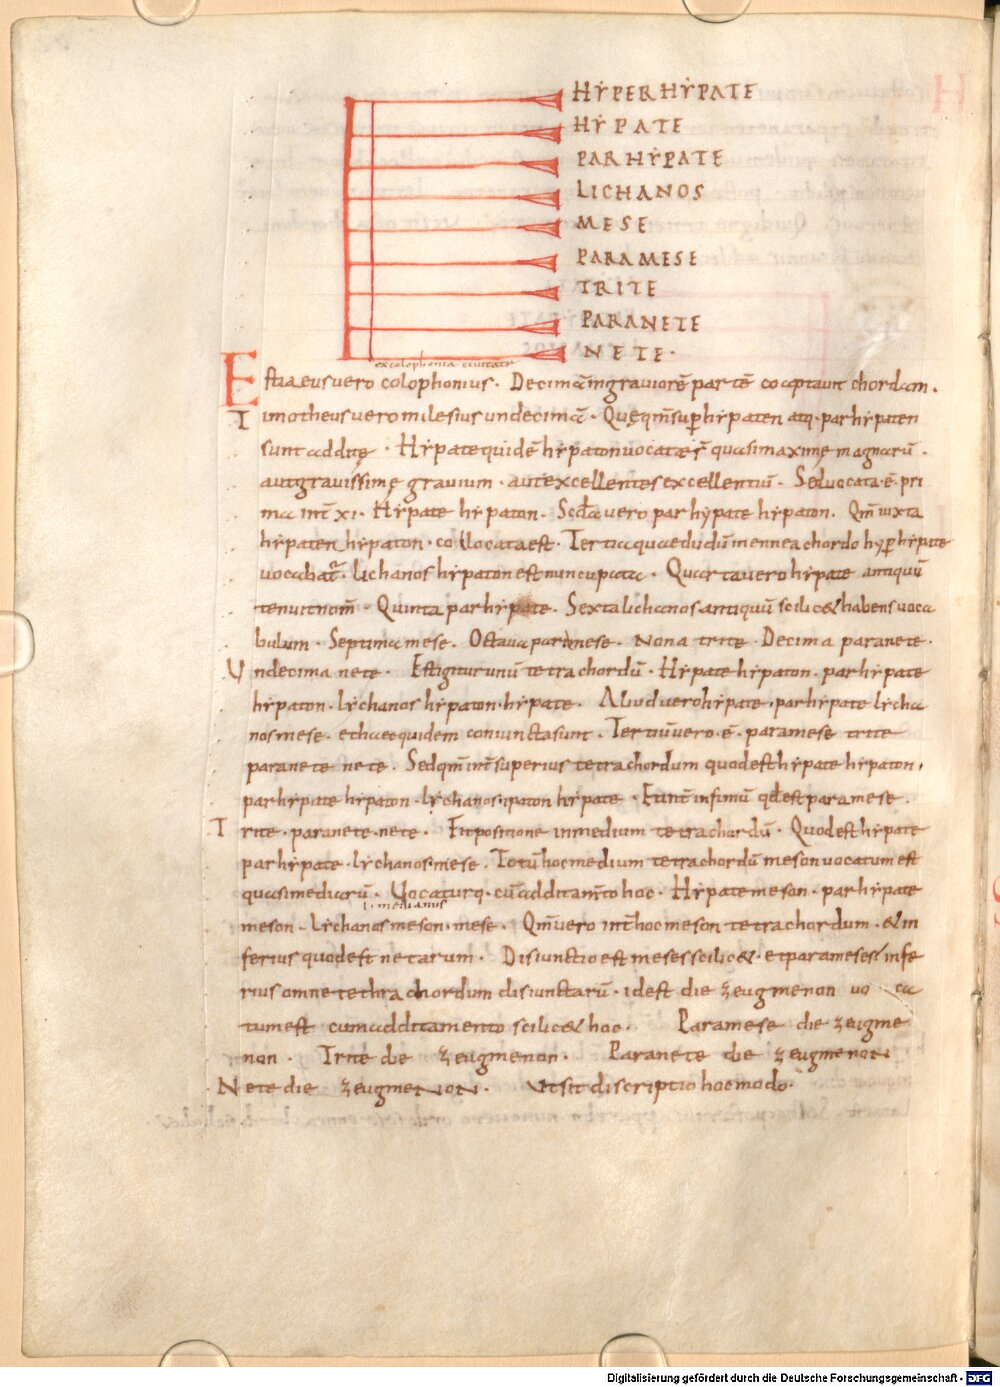 HYPERHYPATE
HYPATE
PARHYPATE
LICHANOS
MESE
PARAMESE
TRITE
PARANETE
NETE·
ex colophonia ciuitate
Estiaeus uero colophonius. Decimā in grauiorē partē coaptauit chordam.
Timotheus uero milesius undecimā. Quę qm̄ sup hypaten atq· parhypaten
sunt additę. Hypate quidē hypaton uocatae sƚ quasi maximę magnarū.
aut grauissimę grauium. aut excellentes excellentiū. Sed uocata·ē·pri
ma int̄ xi. Hypate hypaton. Scďa uero parhypate hypaton. Qm̄ iuxta
hypaten hypaton. collocata est. Tertia quae dudū in enneachordo hyp hypate
uocabat̄. lichanos hypaton est nuncupata. Quarta uero hypate antiquū
tenuit nom̄. Quinta parhypate. Sexta lichanos. antiquū scilic& habens uoca
bulum. Septima mese. Octaua paramese. Nona trite. Decima paranete.
Undecima nete. Est igitur unū tetrachordū. Hypate hypaton. parhypate
hypaton. lychanos hypaton. hypate. Aliud uero hypate. parhypate lycha
nos mese. et haec quidem coniuncta sunt. Tertiū uero·ē·paramese trite
paranete nete. Sed qm̄ int̄ superius tetrachordum quod est hypate hypaton.
parhypate hypaton. lychanos ipaton hypate. Et int̄ infimū qđ est paramese.
Trite. paranete. nete. Fit positione in medium tetrachordū. Quod est hypate
parhypate. lychanos. mese. Totū hoc medium tetrachordū meson uocatum est
quasi mediarū. Uocaturq· cū additam̄to hoc. Hypate meson. parhypate
i. medianus
meson. lychanos meson. mese. Qm̄ uero int̄ hoc meson tetrachordum. & in
ferius quod est netarum. Disiunctio est meses scilic&. et parameses infe
rius omne tethrachordum disiunctarū. id est die zeugmenon uo ca
tum est cum additamento scilic& hoc. Paramese die zeugme
non. Trite die zeugmenon. Paranete die zeugmenon
Nete die zeugmenon. Ut sit discriptio hoc modo.
Digitalisierung gefördert durch die Deutsche Forschungsgemeinschaft - DFG